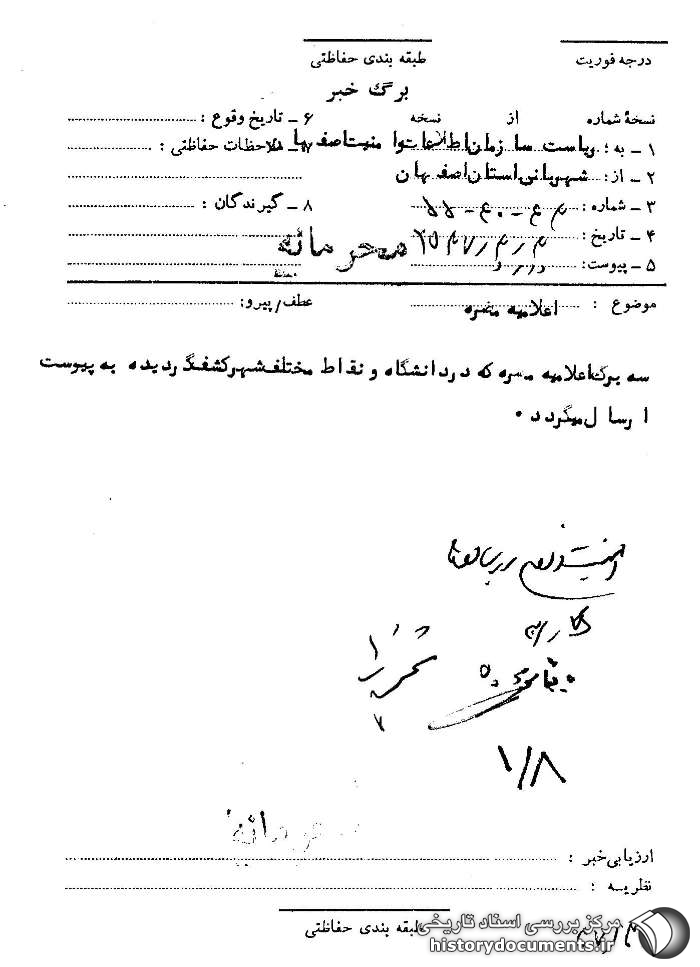 درجه فوریت
طبقه بندی حفاظتی
برگ خبر
نسخهٔ شماره از نسخه
۱ ـ به : ریاست سازمان اطلاعات و امنیت اصفهان
۲ ـ از : شهربانی استان اصفهان
۳ ـ شماره :
۴ ـ تاریخ :
۵ ـ پیوست :
۶ ـ تاریخ وقوع :
۷ ـ ملاحظات حفاظتی :
۸ ـ گیرندگان :
محرمانه
موضوع : اعلامیه مضره
عطف/پیرو:
سه برگ اعلامیه مضره که در دانشگاه و نقاط مختلف شهر کشف گردیده به پیوست
ارسال میگردد .
۱/۸
محرمانه
ارزیابی خبر :
نظریه :
طبقه بندی حفاظتی
مرکز بررسی اسناد تاریخی
historydocuments.ir